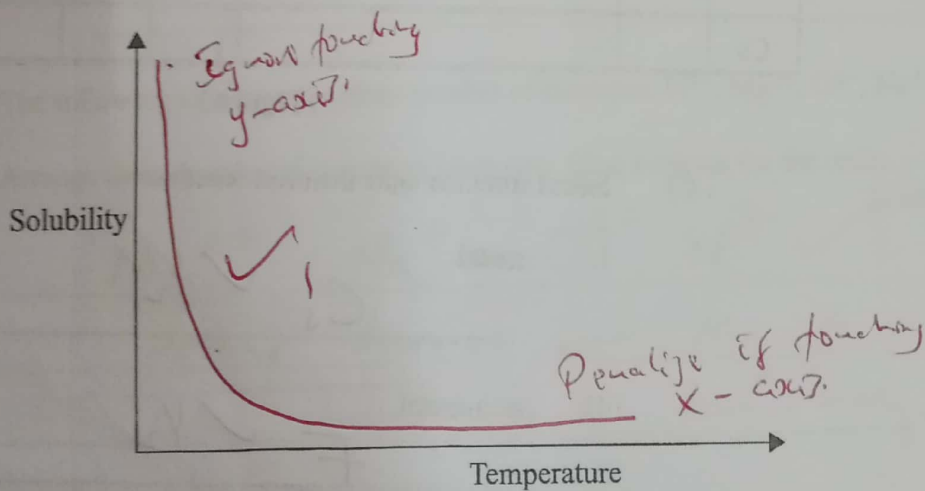 Ignore touching
y-axis.
Solubility
1
Penalize if touching
x - axis.
Temperature